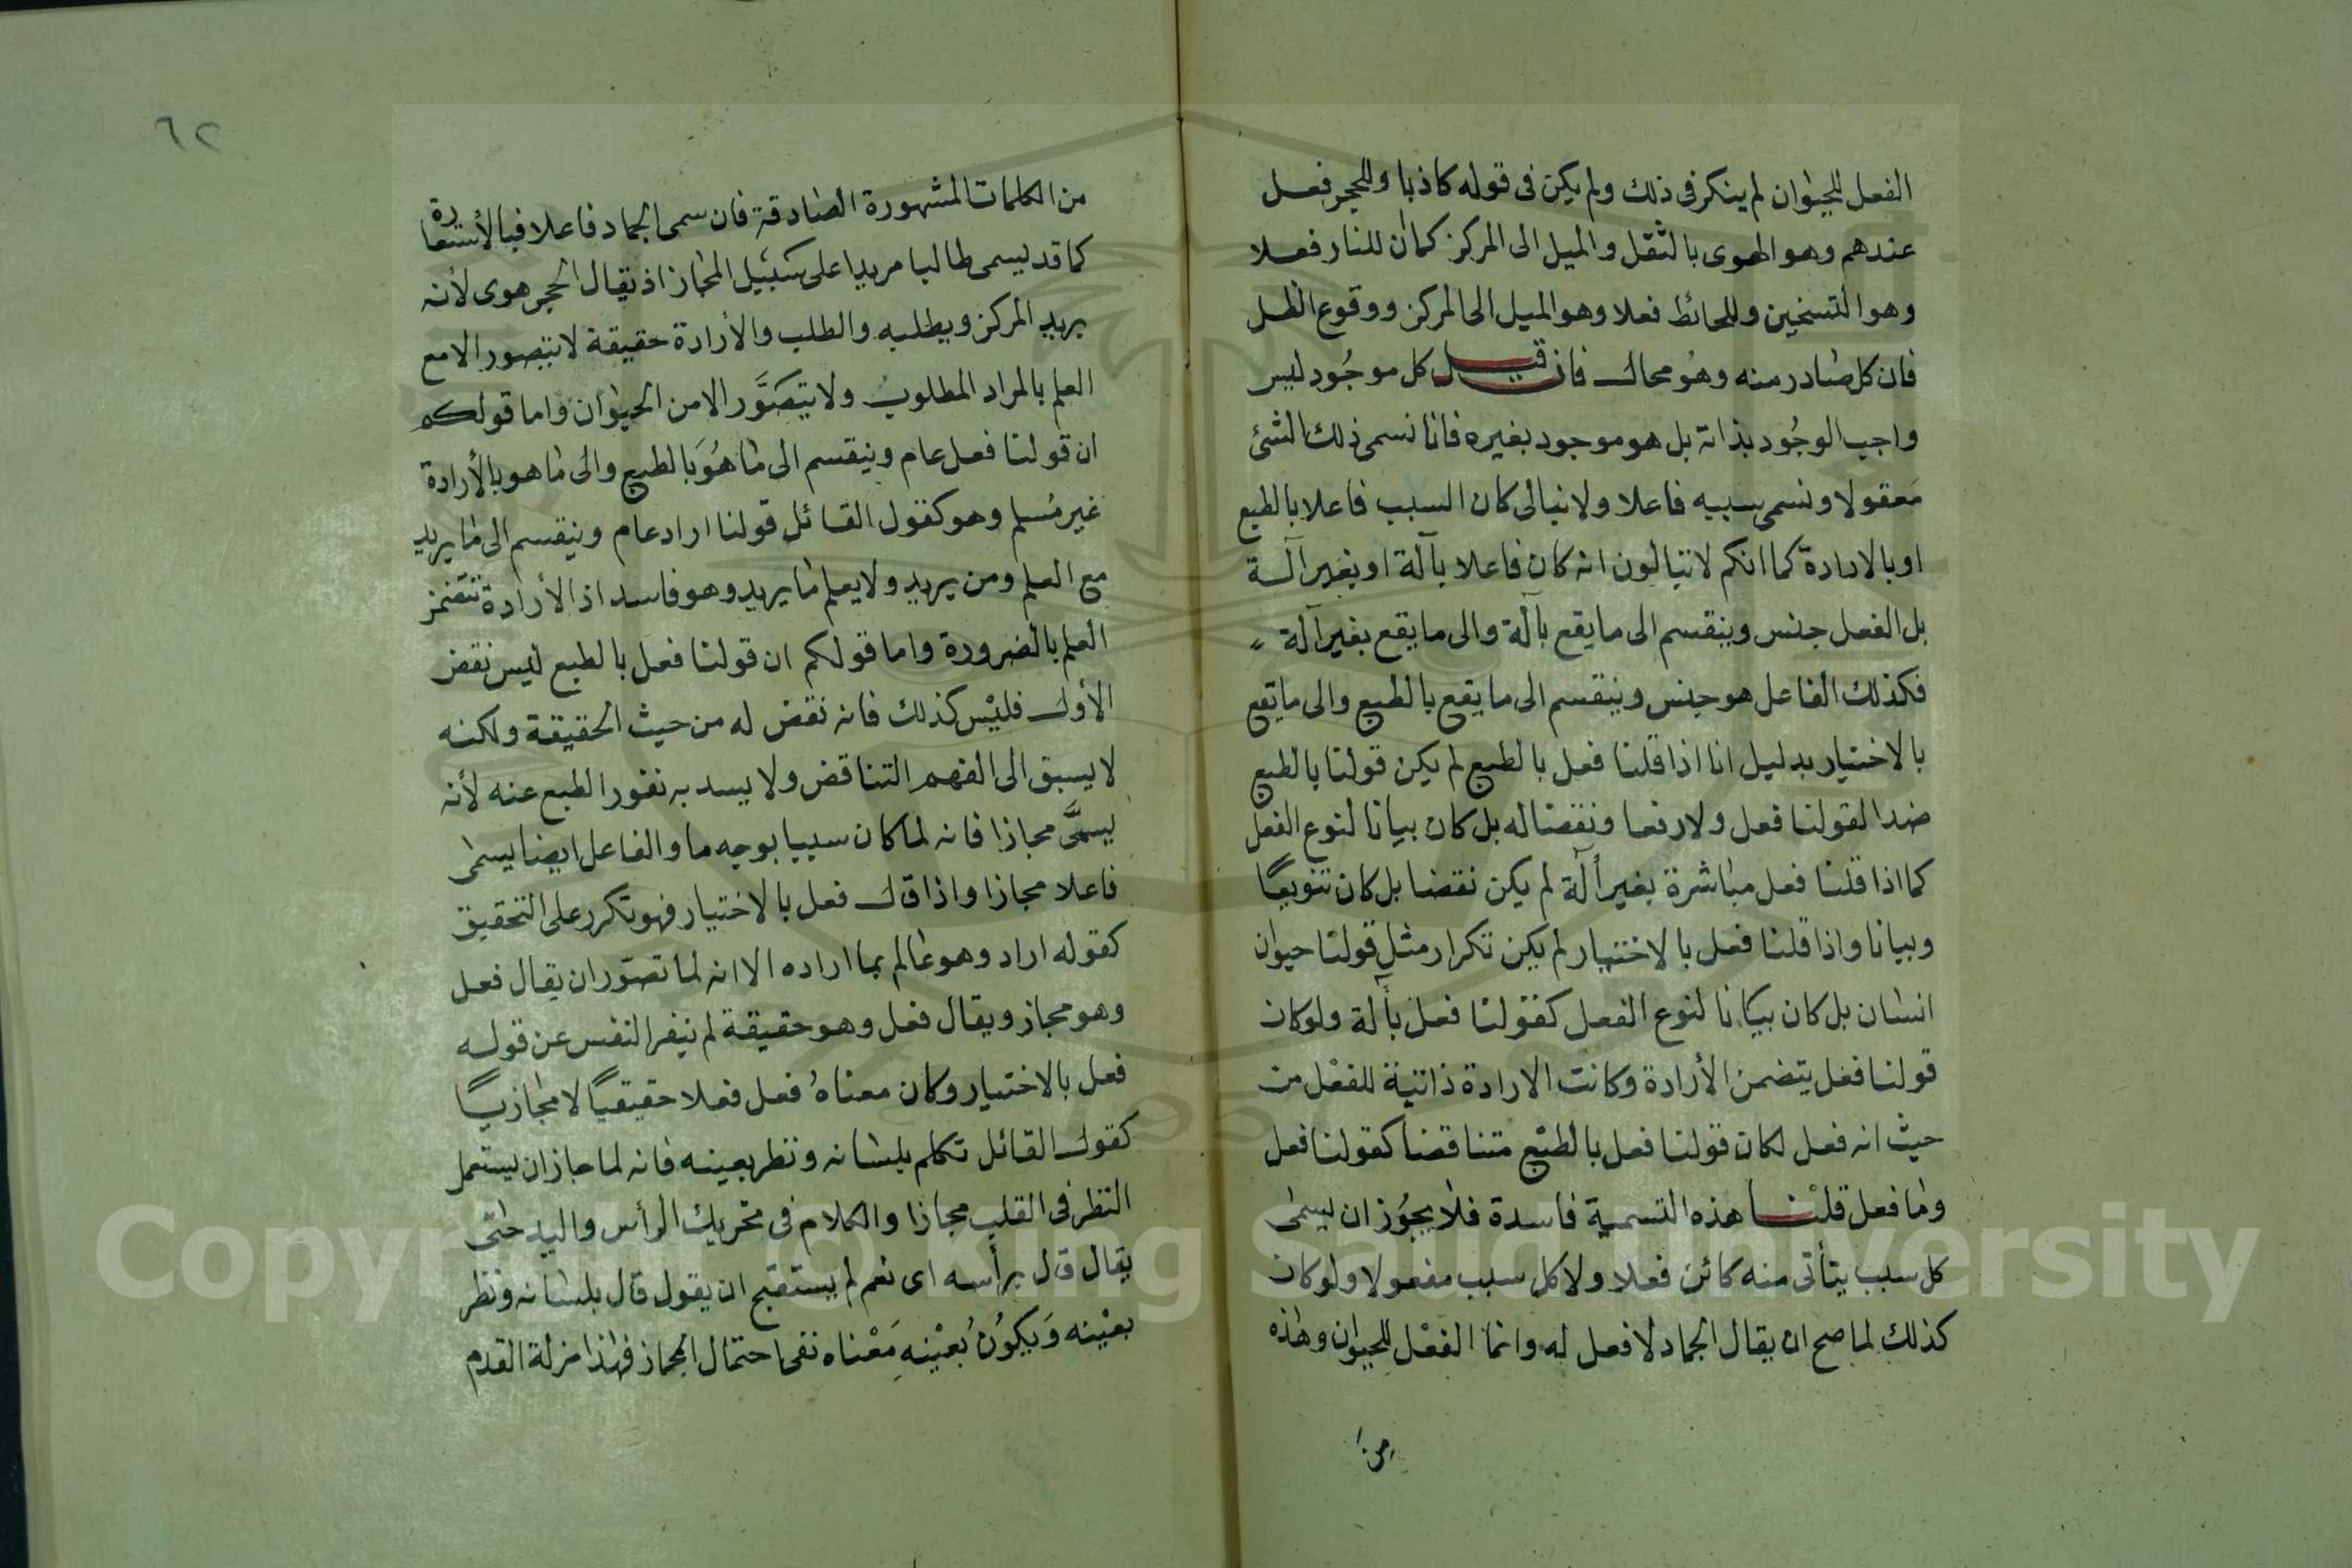 الفعل للحيوان لم ينكر فى ذلك ولم يكن فى قوله كاذبا وللحجر فعل
عندهم وهو الهوى بالثقل والميل الى المركز كما ان للنار فعلا
وهو التسخين وللحائط فعلا وهو الميل الى المركز ووقوع الظل
فان كل صادر منه وهو محال فان قيل كل موجود ليس
واجب الوجود بذاته بل هو موجود بغيره فانا نسمى ذلك الشئ
مفعولا ونسمى سببه فاعلا ولا نبالى كان السبب فاعلا بالطبع
او بالارادة كما انكم لا تبالون انه كان فاعلا بآلة او بغير آلة
بل الفعل جنس وينقسم الى ما يقع بآلة والى ما يقع بغير آلة
فكذلك الفاعل هو جنس وينقسم الى ما يقع بالطبع والى ما يقع
بالاختيار بدليل انا اذا قلنا فعل بالطبع لم يكن قولنا بالطبع
ضدا لقولنا فعل ولا رفعا ونقضا له بل كان بيانا لنوع الفعل
كما اذا قلنا فعل مباشرة بغير آلة لم يكن نقضا بل كان تنويعًا
وبيانا واذا قلنا فعل بالاختيار لم يكن تكرار مثل قولنا حيوان
انسان بل كان بيانا لنوع الفعل كقولنا فعل بآلة ولو كان
قولنا فعل يتضمن الأرادة وكانت الارادة ذاتية للفعل من
حيث انه فعل لكان قولنا فعل بالطبع متناقضا كقولنا فعل
وما فعل قلنا هذه التسمية فاسدة فلا يجوز ان يسمى
كل سبب يتأتى منه كائن فعلا ولا كل سبب مفعولا ولو كان
كذلك لما صح ان يقال الجماد لا فعل له وانما الفعل للحيوان وهذه
من
٦٢
من الكلمات المشهورة الصادقة فان سمى الجماد فاعلا فبالأستعارة
كما قد يسمى طالبا مريدا على سبيل المجاز اذ يقال الحجر هوى لأنه
يريد المركز ويطلبه والطلب والأرادة حقيقة لا يتصور الا مع
العلم بالمراد المطلوب ولا يتصوَّر الا من الحيوان واما قولكم
ان قولنا فعل عام وينقسم الى ما هو بالطبع والى ما هو بالأرادة
غير مسلم وهو كقول القائل قولنا اراد عام وينقسم الى ما يريد
مع العلم ومن يريد ولا يعلم ما يريد وهو فاسد اذ الأرادة تتضمن
العلم بالضرورة واما قولكم ان قولنا فعل بالطبع ليس نقض
الأول فليس كذلك فانه نقض له من حيث الحقيقة ولكنه
لا يسبق الى الفهم التناقض ولا يسد به نفور الطبع عنه لأنه
يسمَّى مجازا فانه لما كان سببا بوجه ما والفاعل ايضا يسمى
فاعلا مجازا واذا قال فعل بالاختيار فهو تكرر على التحقيق
كقوله اراد وهو عالم بما اراده الا انه لما تصوّر ان يقال فعل
وهو مجاز ويقال فعل وهو حقيقة لم ينفر النفس عن قوله
فعل بالاختيار وكان معناهُ فعل فعلا حقيقيًا لا مجازيًا
كقول القائل تكلم بلسانه ونظر بعينه فانه لما جاز ان يستعمل
النظر فى القلب مجازا والكلام فى تحريك الرأس واليد حتى
يقال قال برأسه اى نعم لم يستقبح ان يقول قال بلسانه ونظر
بعينه وَيكون بعينه مَعْناه نفى احتمال المجاز فهذا مزلة القدم
Copyright © King Saud University